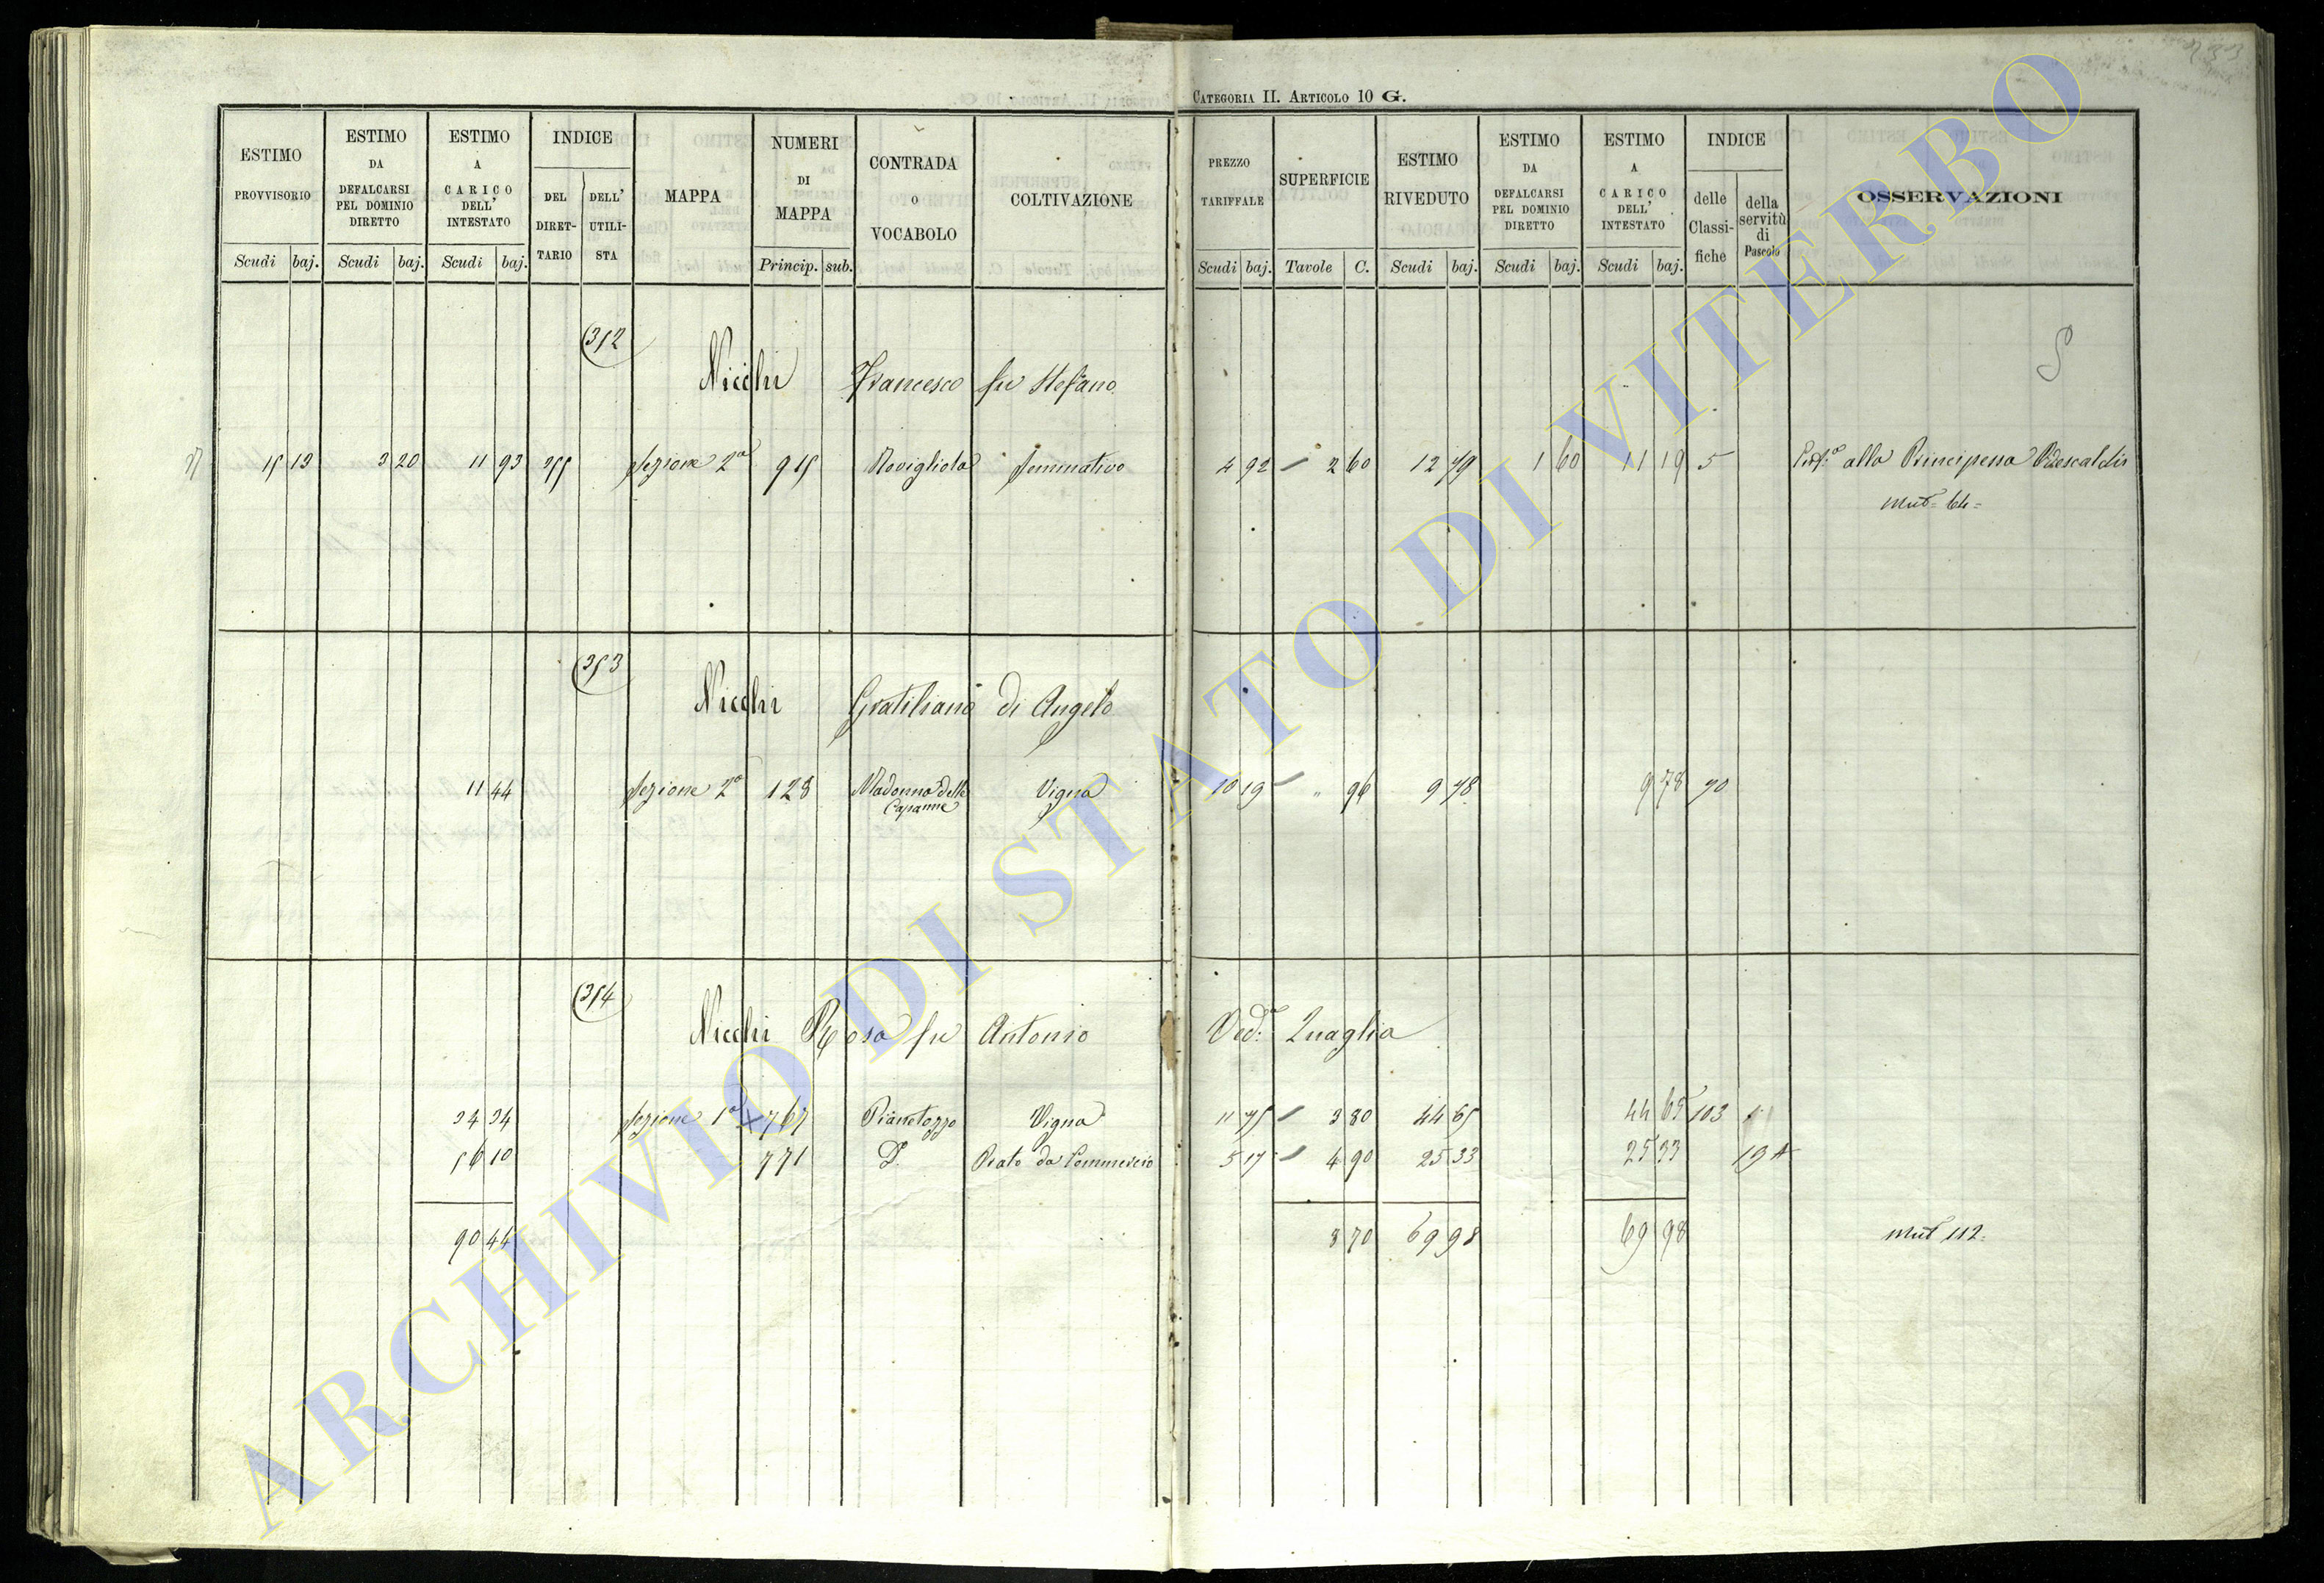 CATEGORIA II. ARTICOLO 10 G.
ESTIMO PROVVISORIO Scudi baj.
ESTIMO DA DEFALCARSI PEL DOMINIO DIRETTO Scudi baj.
ESTIMO A CARICO DELL' INTESTATO Scudi baj.
INDICE DEL DIRET-TARIO DELL' UTILI-STA
MAPPA
NUMERI DI MAPPA Princip. sub.
CONTRADA o VOCABOLO
COLTIVAZIONE
PREZZO TARIFFALE Scudi baj.
SUPERFICIE Tavole C.
ESTIMO RIVEDUTO Scudi baj.
ESTIMO DA DEFALCARSI PEL DOMINIO DIRETTO Scudi baj.
ESTIMO A CARICO DELL' INTESTATO Scudi baj.
INDICE delle Classi-fiche della servitù di Pascolo
OSSERVAZIONI
352
Nicolai Francesco fu Stefano
15 13 3 20 11 93 355 Sezione 2a 915 Rovigliola Seminativo 4 92 2 60 12 79 1 60 11 19 5 alla Principessa Odescalchi
Mut = 64 =
353
Nicolai Gratiliano di Angelo
11 44 Sezione 2a 128 Madonna delle Capanne Vigna 10 19 " 96 9 78 9 78 70
354
Nicolai Rosa fu Antonio Ved.a Quaglia
34 34 Sezione 1a 767 Pianetozzo Vigna 11 75 3 80 44 65 44 65 103
56 10 771 D.o Prato da Commercio 5 17 4 90 25 33 25 33 19 A
90 44 8 70 69 98 69 98 Mut 112.
ARCHIVIO DI STATO DI VITERBO